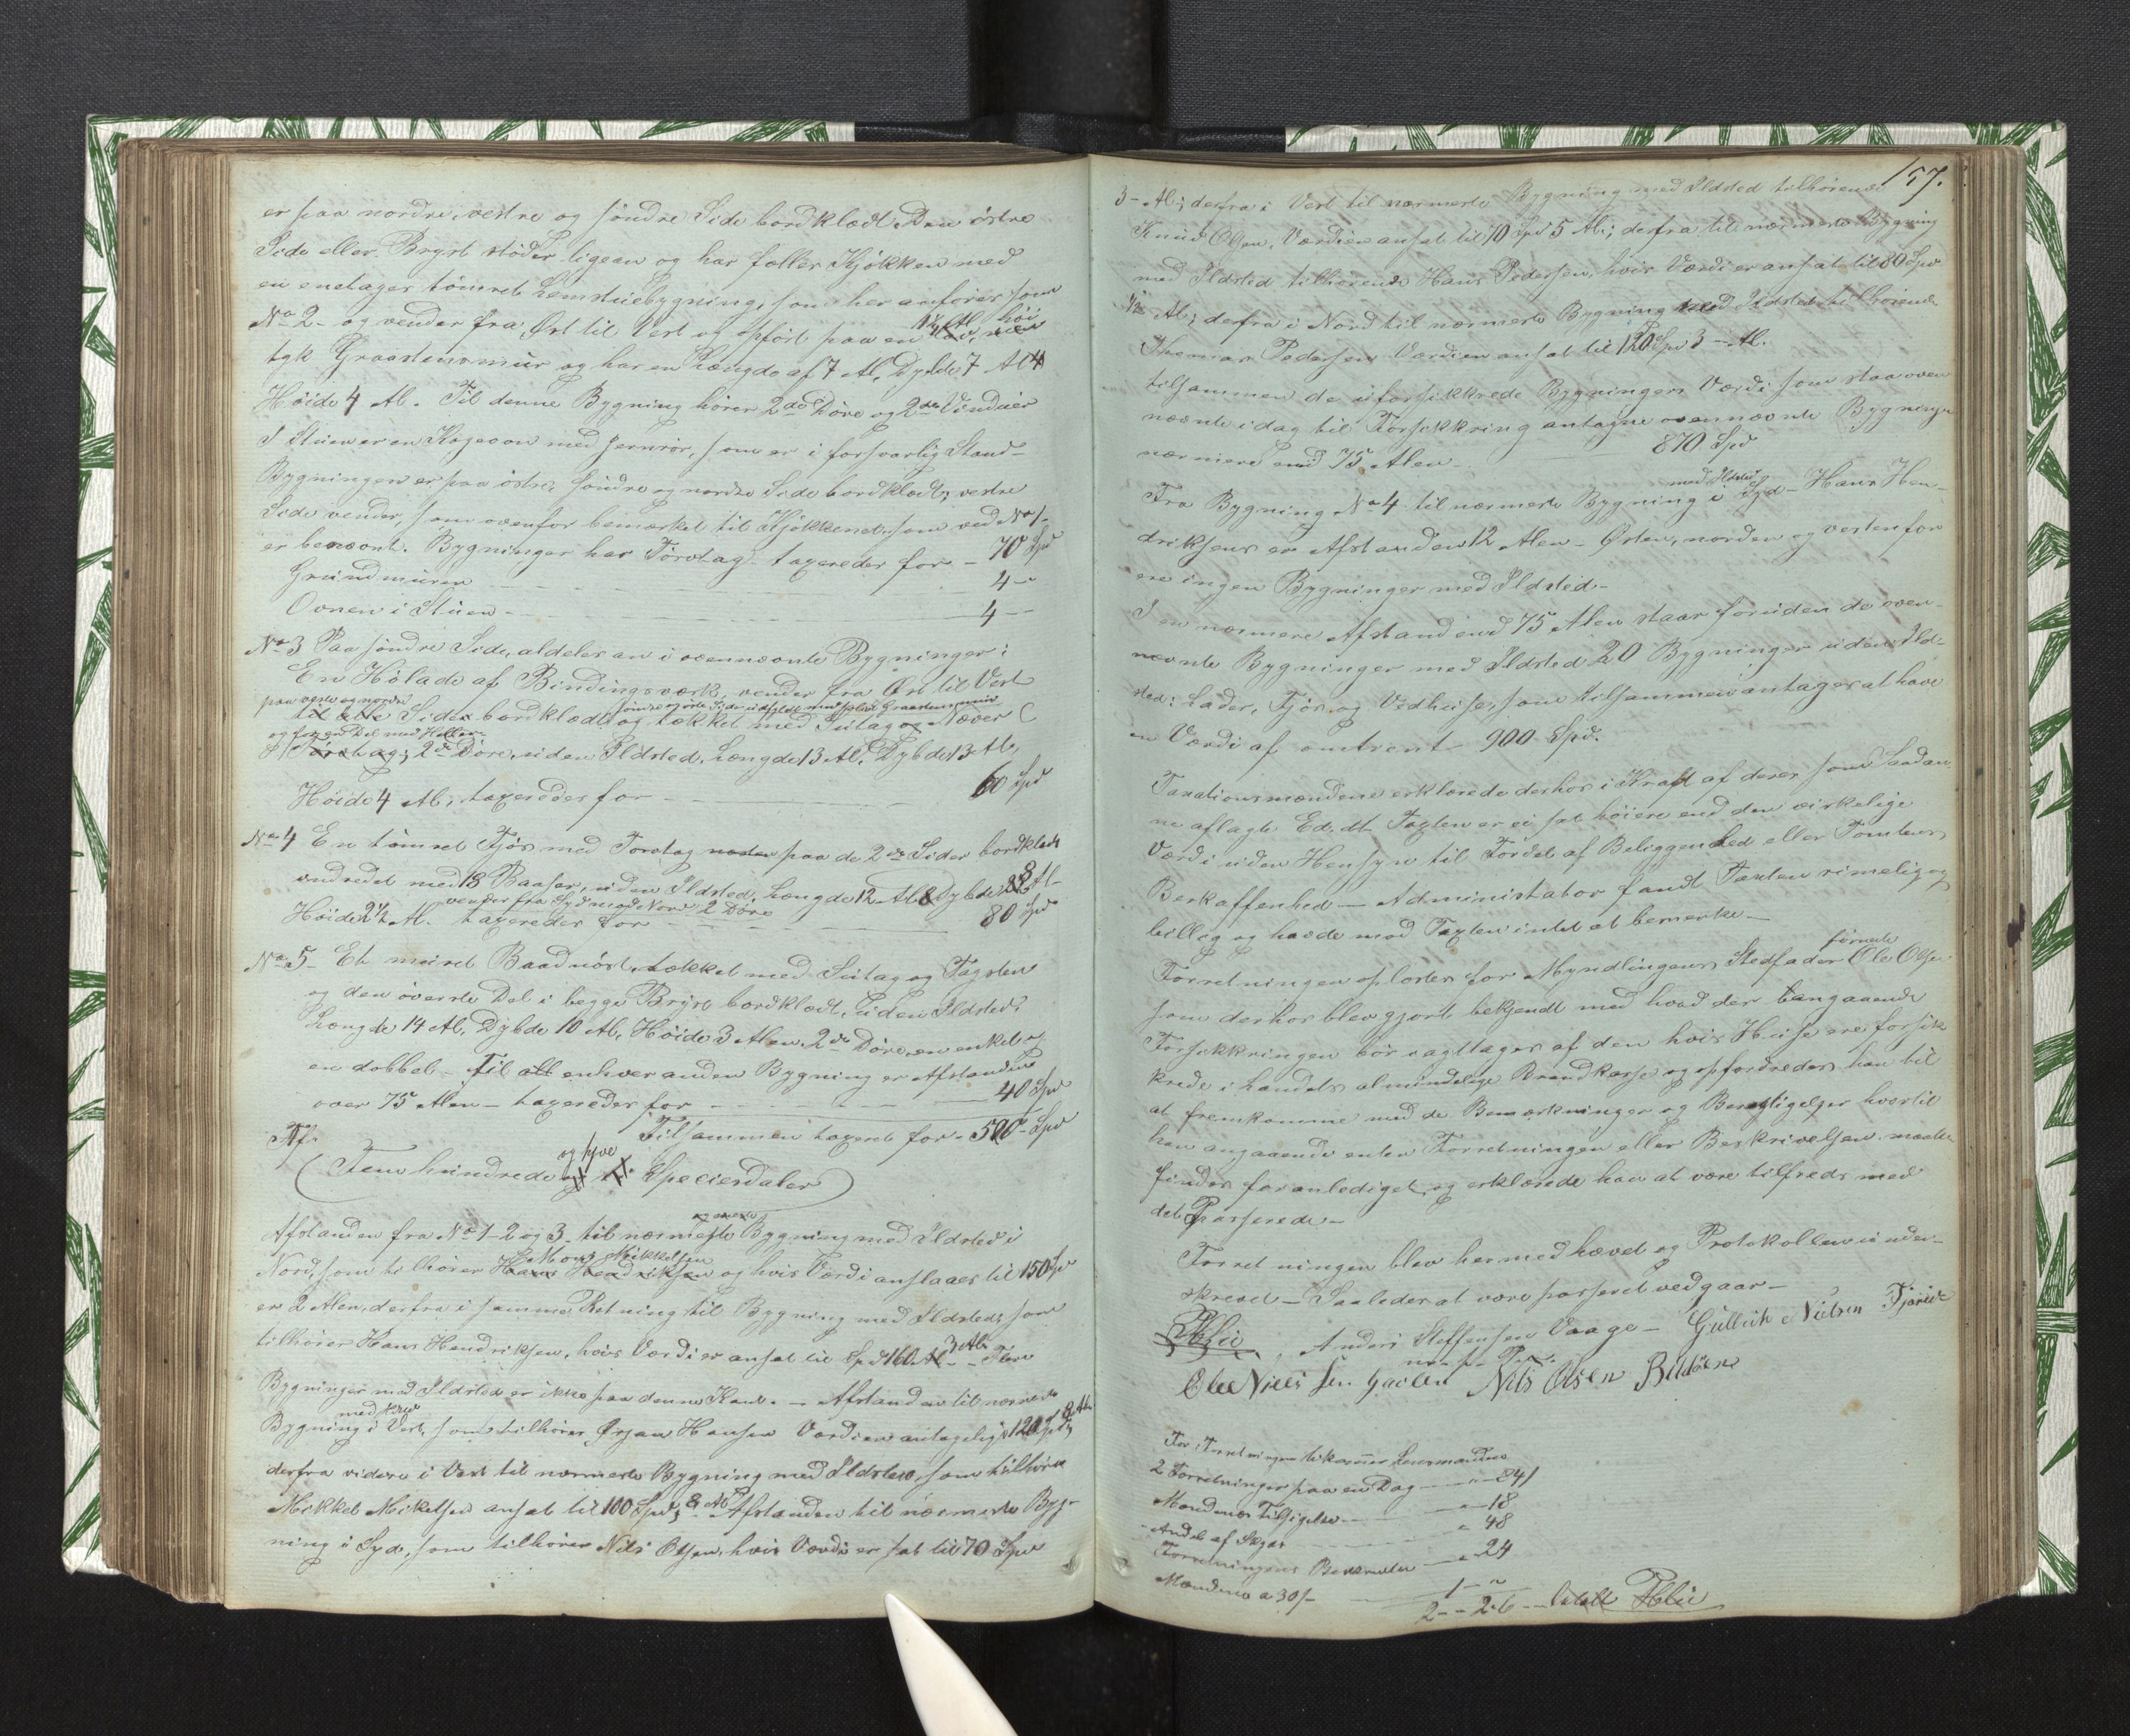 er paa nordre, vestre og søndre Side bordklædt. Den østre
Side eller Bryst støder ligean og har fælles Kjøkken med
en enetages tømret Lemstuebygning, som her anføres som
No 2 - og vender fra Øst til Vest og opført paa en 1 1/4 Al. høi
tyk Graasteensmuur og har en Længde af 7 Al, Dybde 7 Al
Høide 4 Al. Til denne Bygning hører 2de Døre og 2de Vinduer
I Stuen er en Kogeovn med Jernrør, som er i forsvarlig Stand -
Bygningen er paa østre, søndre og nordre Side bordklædt; vestre
Side vender, som ovenfor bemærket til Kjøkkenet, som ved No 1.
er benævnt. Bygningen har Torvtag - taxeredes for - 70 Spd
Grundmuren - 4 -
Ovnen i Stuen - 4 -
No 3 Paa søndre Side, aldeles an i ovennævnte Bygninger:
En Hølade af Bindingsværk, vender fra Øst til Vest
paa vestre og nordre
Side bordklædt søndre og østre Side udfyldt med Graasteensmuur og tækket med Sutag og Næver
og for en Del med Heller
Torvtag; 2de Døre, uden Ildsted, Længde 13 Al, Dybde 13 Al,
Høide 4 Al, taxeredes for - 60 Spd
No 4 En tømret Fjøs med Torvtag paa de 2de Sider bordklædt
indredet med 13 Baaser, uden Ildsted, Længde 12 Al Dybde 8 Al -
vender fra Syd mod Nord 2 Døre
Høide 2 1/2 Al. taxeredes for - 80 Spd
No 5 - Et muret Baadnøst, tækket med Sutag og Tagsten
og den øverste Del i begge Bryst bordklædt, uden Ildsted,
Længde 14 Al, Dybde 10 Al, Høide 3 Alen, 2de Døre, en enkelt og
en dobbel - Til enhver anden Bygning er Afstanden
over 75 Alen - taxeredes for - 40 Spd
Tilsammen taxeret for - 520 Spd
og tyve
(Fem hundrede Speciesdaler)
Afstanden fra No 1 - 2 og 3 - til nærmeste Bygning med Ildsted i
Mons Mikkelsen
Nord, som tilhører Hans Hendriksen og hvis Værdi anslaaes til 150 Spd
er 2 Alen, derfra i samme Retning til Bygning med Ildsted, som
tilhører Hans Hendriksen, hvis Værdi er ansat til Spd 160 3 Al. - Flere
Bygninger med Ildsted er ikke paa denne Kant. - Afstanden til nærmeste
Bygning i Vest, som tilhører Ørjan Hansen Værdien antagelig 120 Spd 8 Al
derfra videre i Vest til nærmeste Bygning med Ildsted, som tilhører
Mikkel Mikelsen ansat til 100 Spd; 8 Al - Afstanden til nærmeste Byg-
ning i Syd, som tilhører Nils Olsen, hvis Værdi er sat til 70 Spd
157.
3 - Al; derfra i Vest til nærmeste Bygning med Ildsted tilhørende
Knud Olsen, Værdien ansat til 70 Spd 5 Al; derfra til nærmeste Bygning
med Ildsted tilhørende Hans Pedersen, hvis Værdi er ansat til 80 Spd
1/2 Al; derfra i Nord til nærmeste Bygning med Ildsted tilhørende
Thomas Pedersen Værdien ansat til 120 Spd 3 - Al.
tilsammen de uforsikkrede Bygningers Værdi som staa oven
nævnte idag til Forsikkring antagne ovennævnte Bygninger
nærmere end 75 Alen - 870 Spd
med Ildsted
Fra Bygning No 4 til nærmeste Bygning i Syd - Hans Hen-
driksens er Afstanden 12 Alen - Østen, norden og vesten for
ere ingen Bygninger med Ildsted -
I en nærmere Afstand end 75 Alen staar foruden de oven-
nævnte Bygninger med Ildsted 20 Bygninger uden Ild-
sted: Lader, Fjøs og Vedhuse, som tilsammen antages at have
en Værdi af omtrent 900 Spd.
Taxationsmændene erklærede derhos i Kraft af deres som Saadan
ne aflagte Ed, at Taxten er ei sat høiere end den virkelige
Værdi uden Hensyn til Fordel af Beliggenhed eller Tomtens
Beskaffenhed - Administrator fandt Taxten rimelig og
billig og havde mod Taxten intet at bemerke -
Forretningen oplæstes for Myndlingens Stedfader førnævnte Ole Olsen
som derhos blev gjort bekjendt med hvad der angaaende
Forsikkringen bør iagttages af den hvis Huse ere forsik
krede i Landets almindelige Brandkasse og opfordredes han til
at fremkomme med de Bemærkninger og Berigtigelser hvortil
han angaaende enten Forretningen eller Beskrivelsen maatte
finde for anlediget, og erklærede han at være tilfreds med
det Passerede -
Forretningen blev hermed hævet og Protokollen under-
skrevet - Saaledes at være passeret vedgaar -
Anders Steffensen Vaage - Gullich Nielsen Fjære
m. f. P.
Ole Niels Sen Nils Olsen Bildøen
For Forretningen tilkommer Lensmanden
2 Forretninger paa en Dag - 84
Mændenes Tilsigelse - 18
Andel af Skyds - 48
Forretningens Beskrivelse - 24
Mændene a 30/- 1 - "
2 - 2.6 - betalt